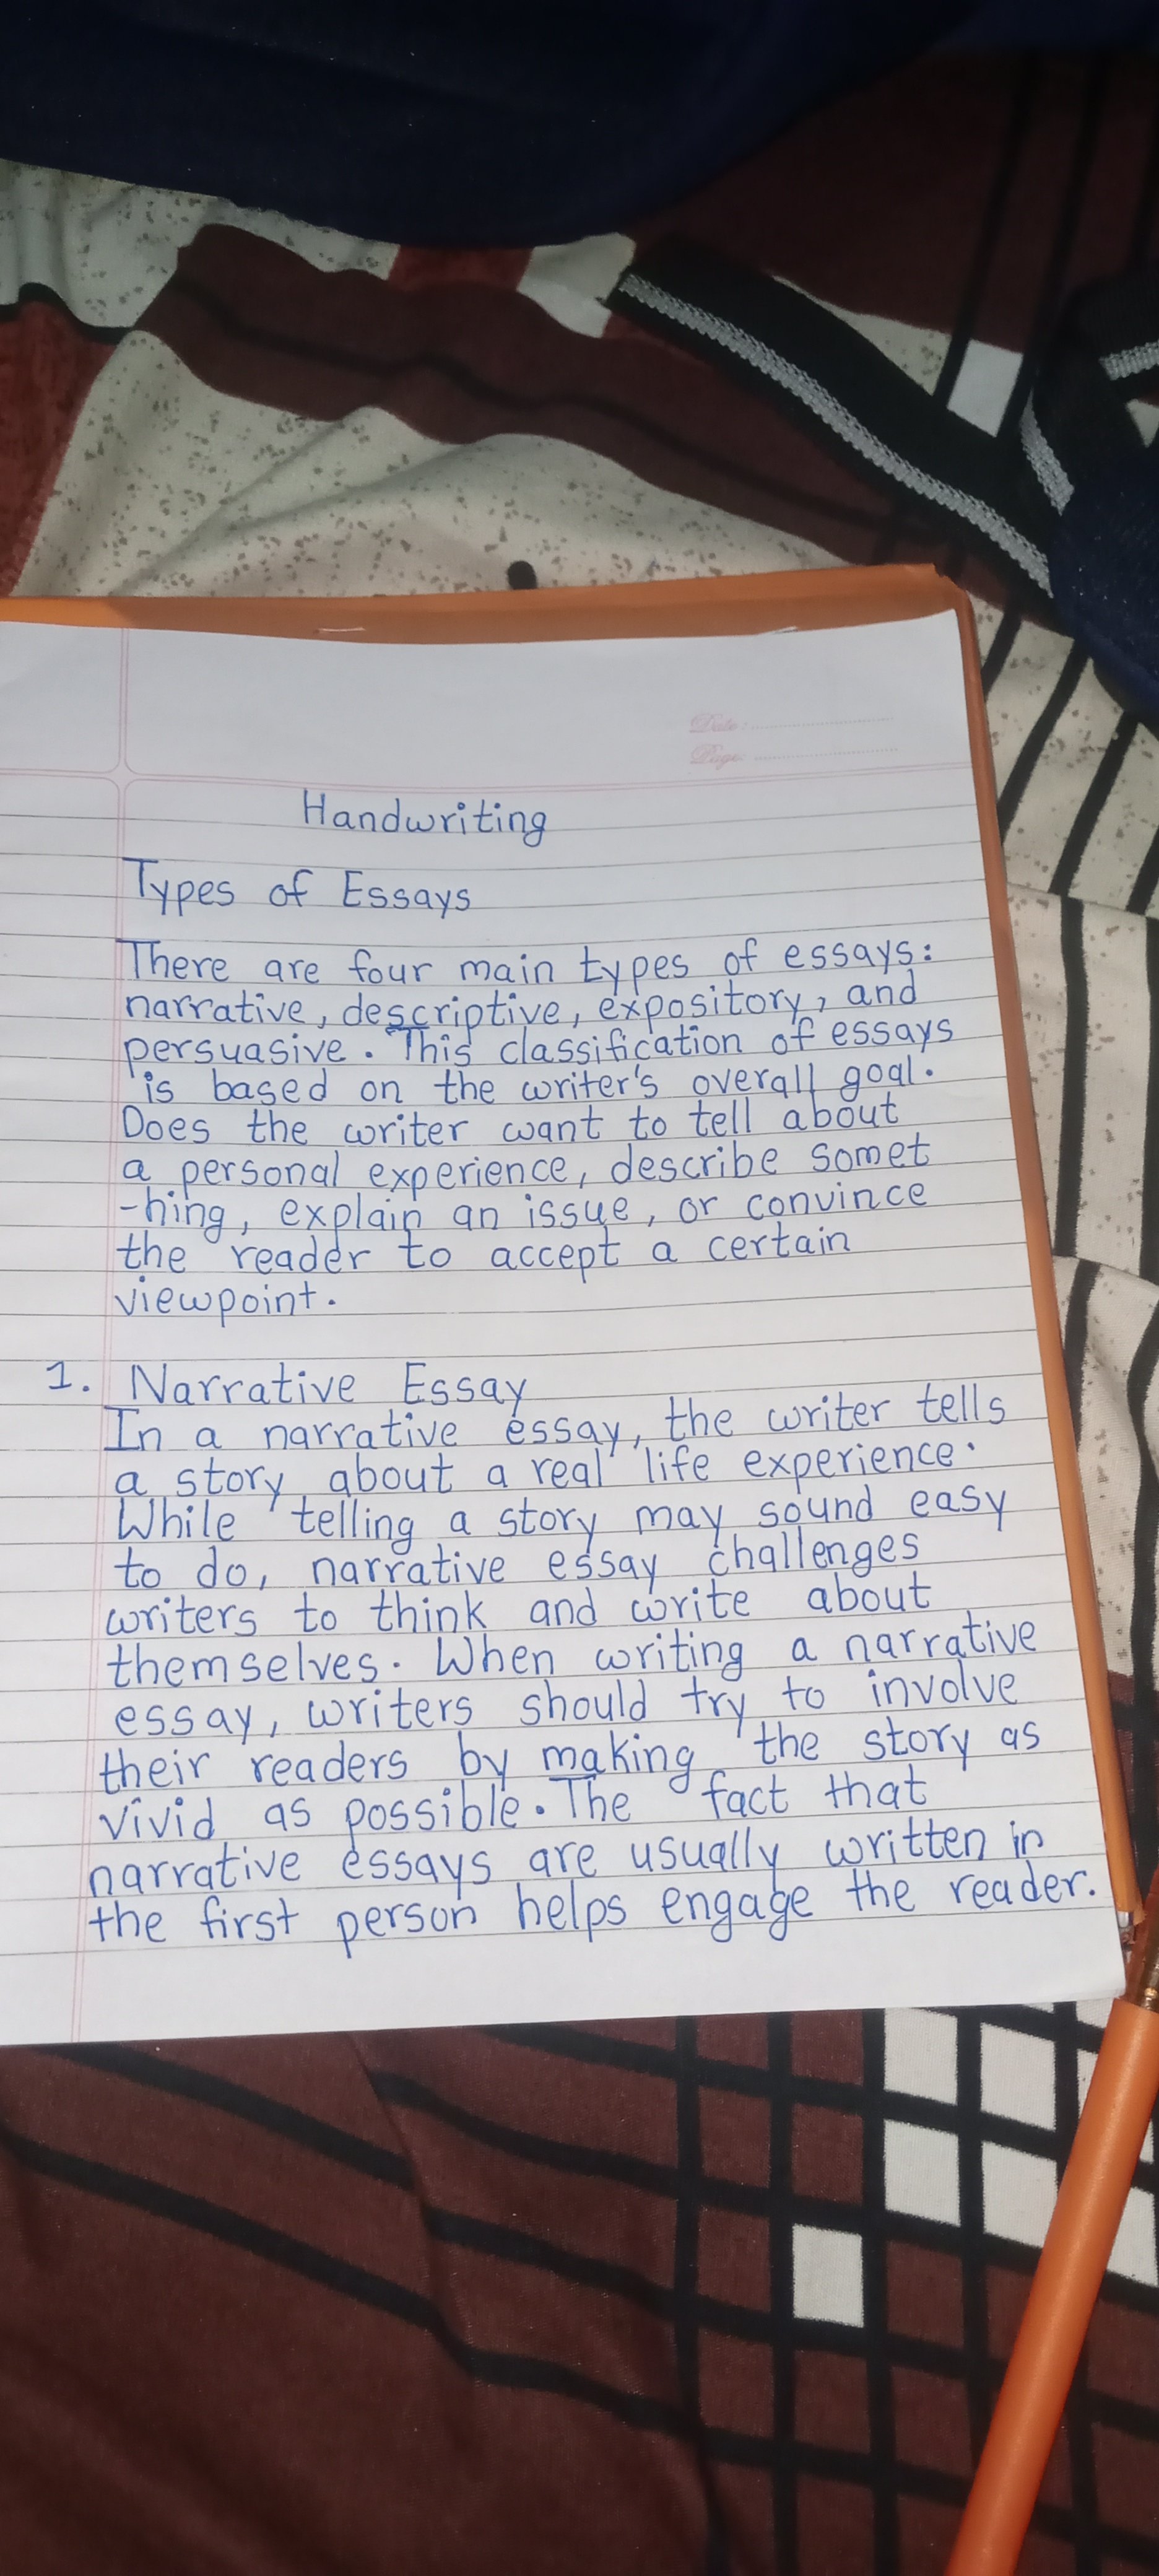 Date:
Page:
Handwriting
Types of Essays
There are four main types of essays:
narrative, descriptive, expository, and
persuasive. This classification of essays
is based on the writer's overall goal.
Does the writer want to tell about
a personal experience, describe somet
-hing, explain an issue, or convince
the reader to accept a certain
viewpoint.
1. Narrative Essay
In a narrative essay, the writer tells
a story about a real life experience.
While telling a story may sound easy
to do, narrative essay challenges
writers to think and write about
themselves. When writing a narrative
essay, writers should try to involve
their readers by making the story as
vivid as possible. The fact that
narrative essays are usually written in
the first person helps engage the reader.